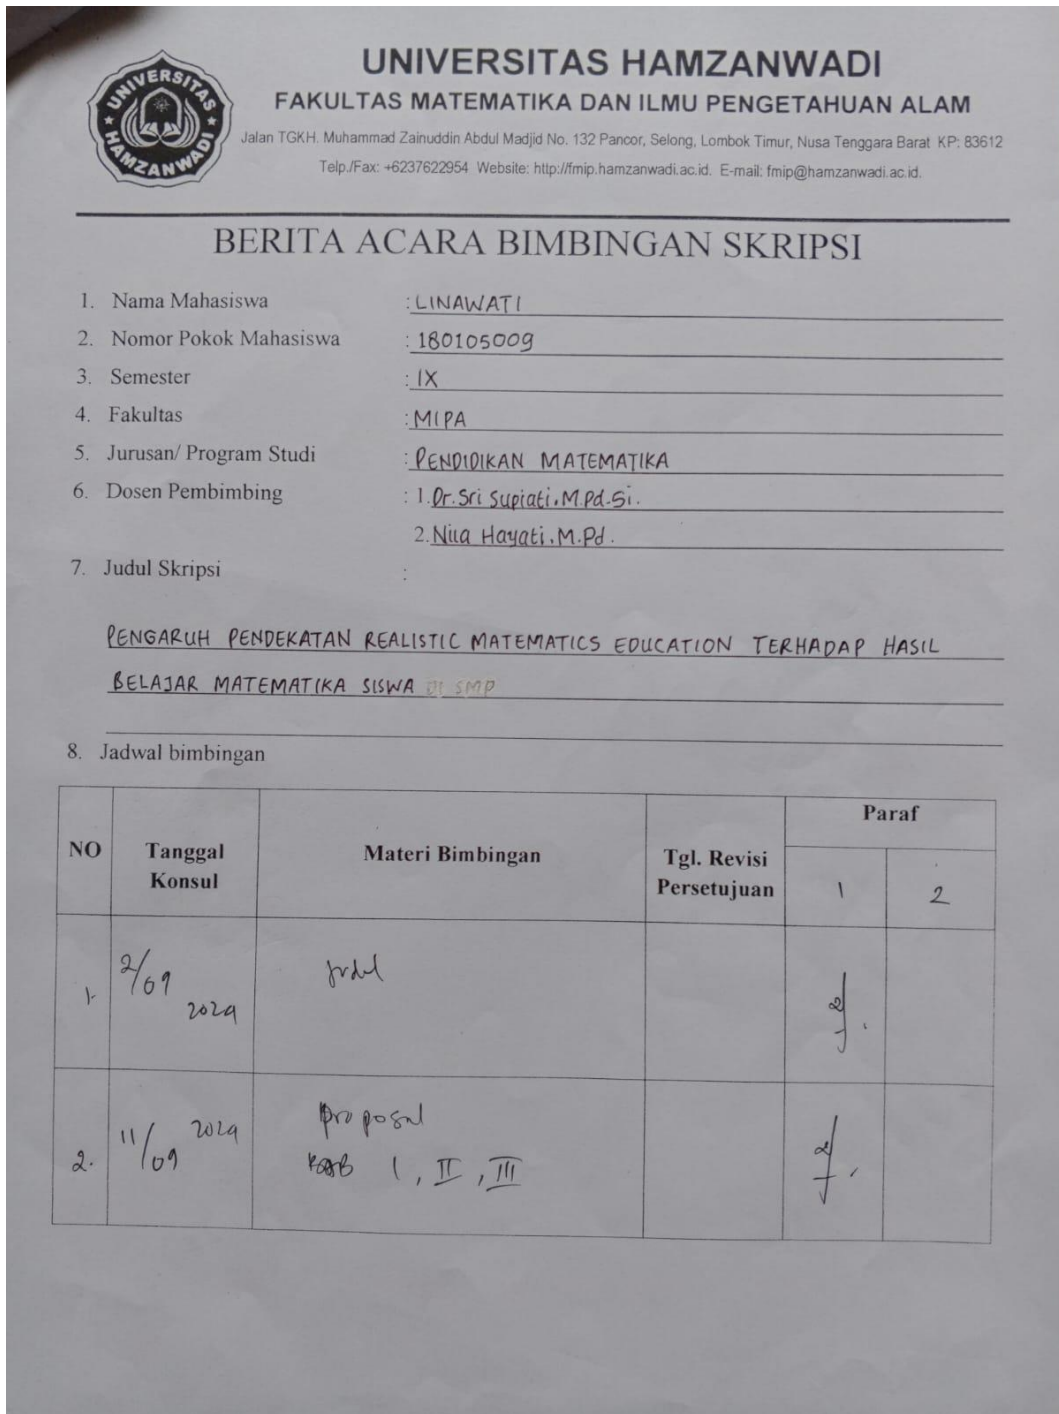 UNIVERSITAS HAMZANWADI
FAKULTAS MATEMATIKA DAN ILMU PENGETAHUAN ALAM
Jalan TGKH. Muhammad Zainuddin Abdul Madjid No. 132 Pancor, Selong, Lombok Timur, Nusa Tenggara Barat KP: 83612
Telp./Fax: +6237622954 Website: http://fmip.hamzanwadi.ac.id. E-mail: fmip@hamzanwadi.ac.id.
UNIVERSITAS HAMZANWADI
BERITA ACARA BIMBINGAN SKRIPSI
1. Nama Mahasiswa : LINAWATI
2. Nomor Pokok Mahasiswa : 180105009
3. Semester : IX
4. Fakultas : MIPA
5. Jurusan/ Program Studi : PENDIDIKAN MATEMATIKA
6. Dosen Pembimbing : 1. Dr. Sri Supiati, M.Pd.Si.
2. Nila Hayati, M.Pd.
7. Judul Skripsi :
PENGARUH PENDEKATAN REALISTIC MATEMATICS EDUCATION TERHADAP HASIL
BELAJAR MATEMATIKA SISWA DI SMP
8. Jadwal bimbingan
NO Tanggal Konsul Materi Bimbingan Tgl. Revisi Persetujuan Paraf
1 2
1. 2/09 2024 judul
2. 11/09 2024 proposal
BAB I, II, III